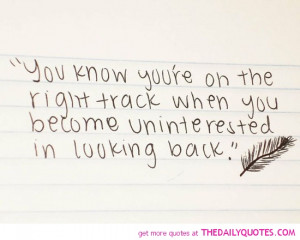 "You know you're on the
right track when you
become uninterested
in looking back."
get more quotes at THEDAILYQUOTES.COM